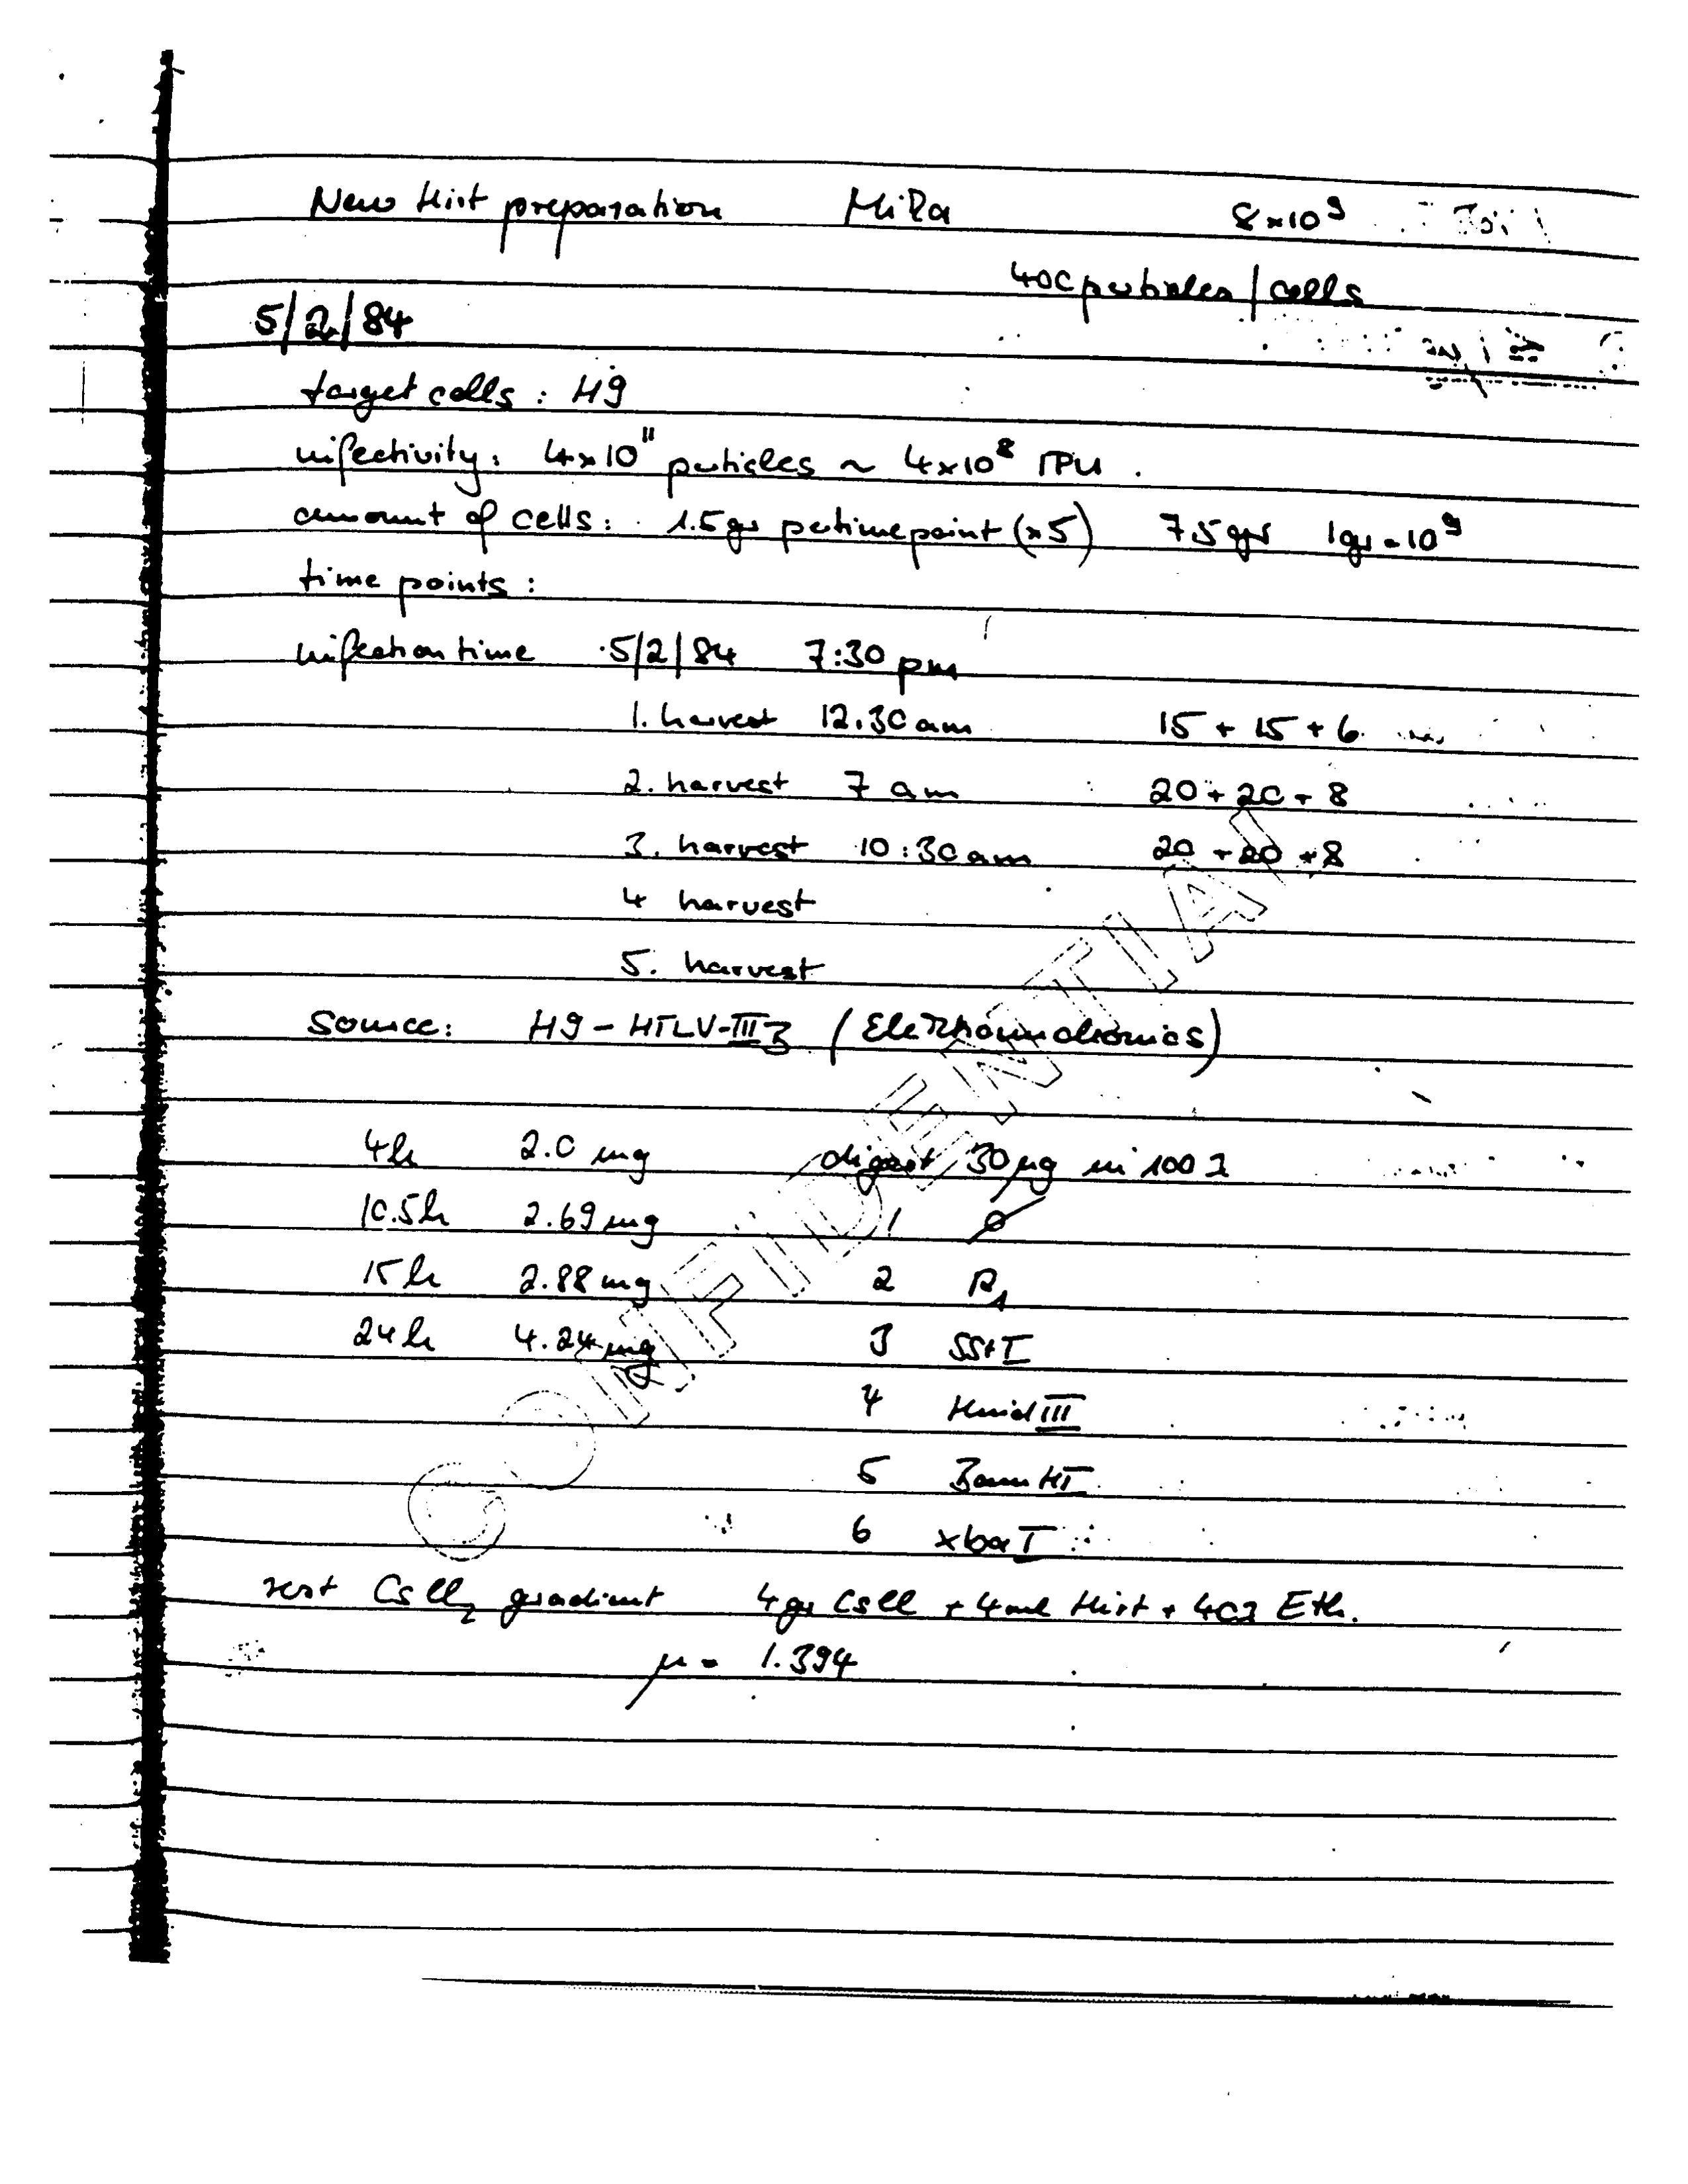 New Hirt preparation MiRa 8x10⁹
400 particles / cells
5/2/84
target cells: H9
infectivity: 4x10¹¹ particles ~ 4x10⁸ IPU.
amount of cells: 1.5 gr per timepoint (x5) 7.5 gr 1gr = 10⁹
time points:
infection time 5/2/84 7:30 pm
1. harvest 12.30 am 15 + 15 + 6
2. harvest 7 am 20 + 20 + 8
3. harvest 10:30 am 20 + 20 + 8
4 harvest
5. harvest
Source: H9 - HTLV-III
4h 2.0 mg digest 30 µg in 100 λ
10.5h 2.69 mg 1 ø
15h 2.88 mg 2 R₁
24h 4.24 mg 3 SstI
4 HindIII
5 BamHI
6 xbaI
rest CsCl₂ gradient 4gr CsCl + 4ml Hirt + 40λ Eth.
µ = 1.394
CONFIDENTIAL